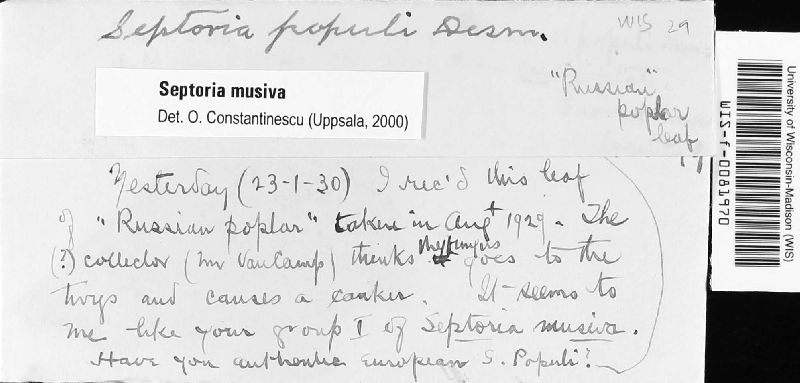 Septoria populi Desm.
WIS 29
Septoria musiva
Det. O. Constantinescu (Uppsala, 2000)
"Russian"
poplar
leaf
Yesterday (23-1-30) I rec'd this leaf
of "Russian poplar" taken in Augt 1929. The
(?) collector (Mr VanCamp) thinks the fungus goes to the
twigs and causes a canker. It seems to
me like your group I of Septoria musiva.
Have you authentic European S. Populi?
University of Wisconsin-Madison (WIS)
WIS-f-0081970